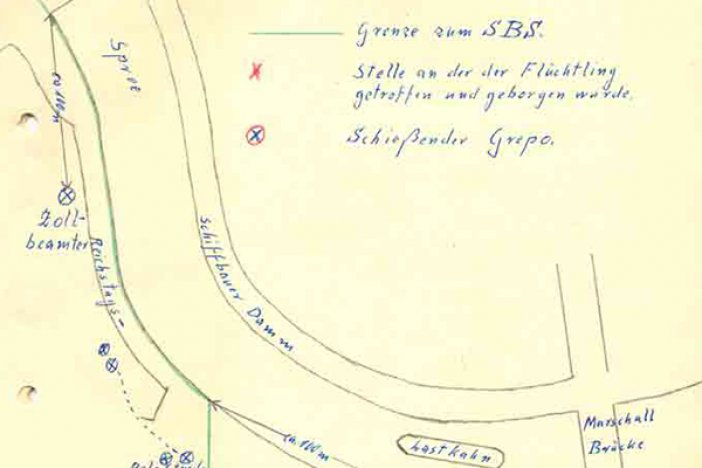 Grenze zum SBS.
Stelle an der der Flüchtling
getroffen und geborgen wurde.
Schießender Grepo.
Spree
ca. 100m
Zoll-
beamter
Reichstags-
Schiffbauer Damm
ca. 100m
Lastkahn
Marschall
Brücke